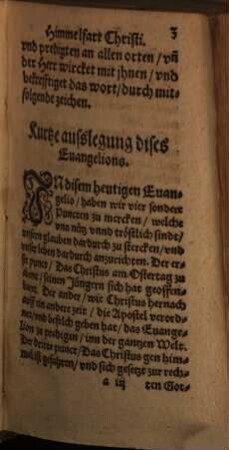 Himmelfart Christi. 3
vnd predigten an allen orten / vñ
der Herr wircket mit jhnen / vnd
bekrefftiget das wort / durch mit-
folgende zeichen.
Kurtze ausslegung dises
Euangelions.
IN disem heutigen Euan-
gelio / haben wir vier sondere
Puncten zu mercken / welche
vns nütz vnnd tröstlich sindt /
vnsern glauben dardurch zu stercken / vnd
vnser leben dardurch anzurichten. Der er-
ste punct / Das Christus am Ostertag zu
seinen Jüngern sich hat geoffen-
bart. Der ander / wie Christus hernach
auff ein andere zeit / die Apostel verord-
net / vnd befelch geben hat / das Euange-
lion zu predigen / inn der gantzen Welt.
Der dritte punct / Das Christus gen him-
mel ist gefahren / vnd sich gesetzt zur rech-
a iij ten Got-